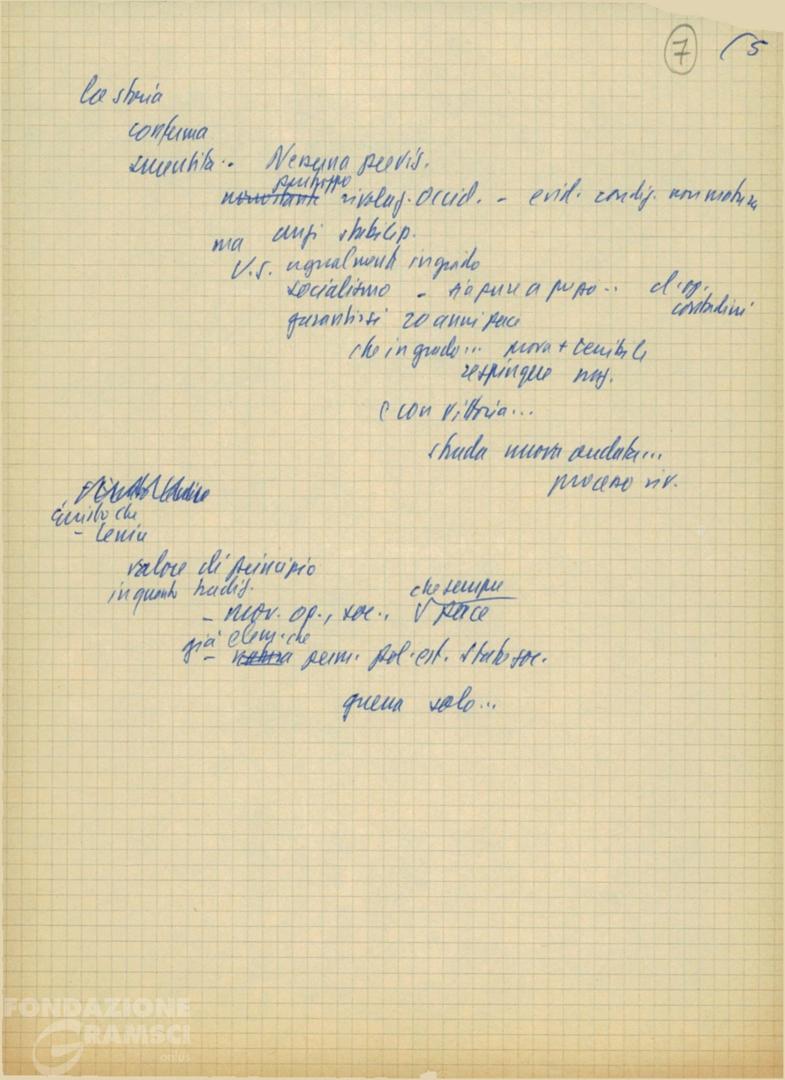 7 (5
la storia
conferma
smentita.. Nessuna previs.
purtroppo
rivoluz. occid. - evid. condiz. non mature
ma anzi stabiliz.
U.S. ugualmente in grado
socialismo - sia pure a prezzo... cl. op.
contadini
garantirsi 20 anni pace
che in grado... prova + terribile
respingere naz.
e con vittoria...
nuova ondata...
processo riv.
è giusto che
- Lenin
valore di principio
in quanto tradiz.
che sempre
- mov. op., soc., V pace
già elem. che
- perm. pol. est. Stato soc.
guerra solo...
FONDAZIONE
GRAMSCI
onlus